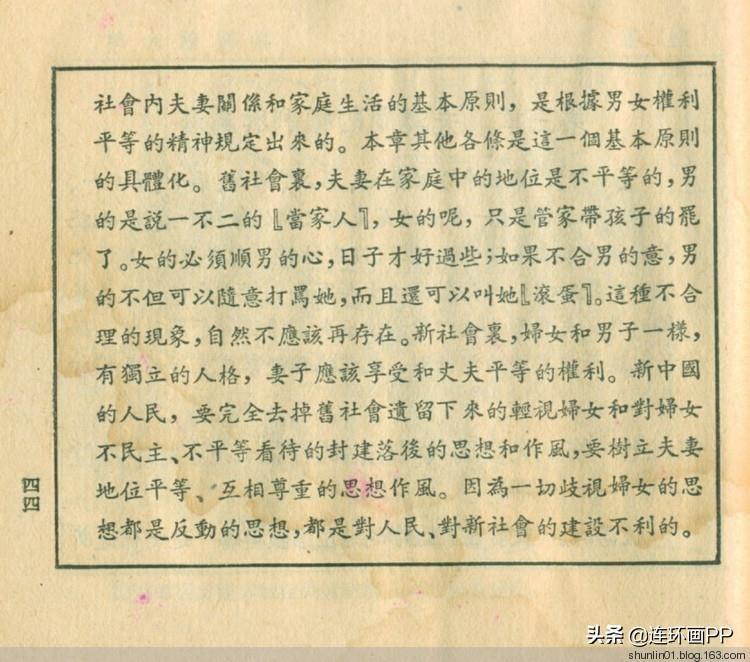 社會內夫妻關係和家庭生活的基本原則，是根據男女權利
平等的精神規定出來的。本章其他各條是這一個基本原則
的具體化。舊社會裏，夫妻在家庭中的地位是不平等的，男
的是説一不二的『當家人』，女的呢，只是管家帶孩子的罷
了。女的必須順男的心，日子才好過些；如果不合男的意，男
的不但可以隨意打罵她，而且還可以叫她『滾蛋』。這種不合
理的現象，自然不應該再存在。新社會裏，婦女和男子一樣，
有獨立的人格，妻子應該享受和丈夫平等的權利。新中國
的人民，要完全去掉舊社會遺留下來的輕視婦女和對婦女
不民主、不平等看待的封建落後的思想和作風，要樹立夫妻
地位平等、互相尊重的思想作風。因為一切歧視婦女的思
想都是反動的思想，都是對人民、對新社會的建設不利的。
四四
头条 @连环画PP
shunlin01.blog.163.com